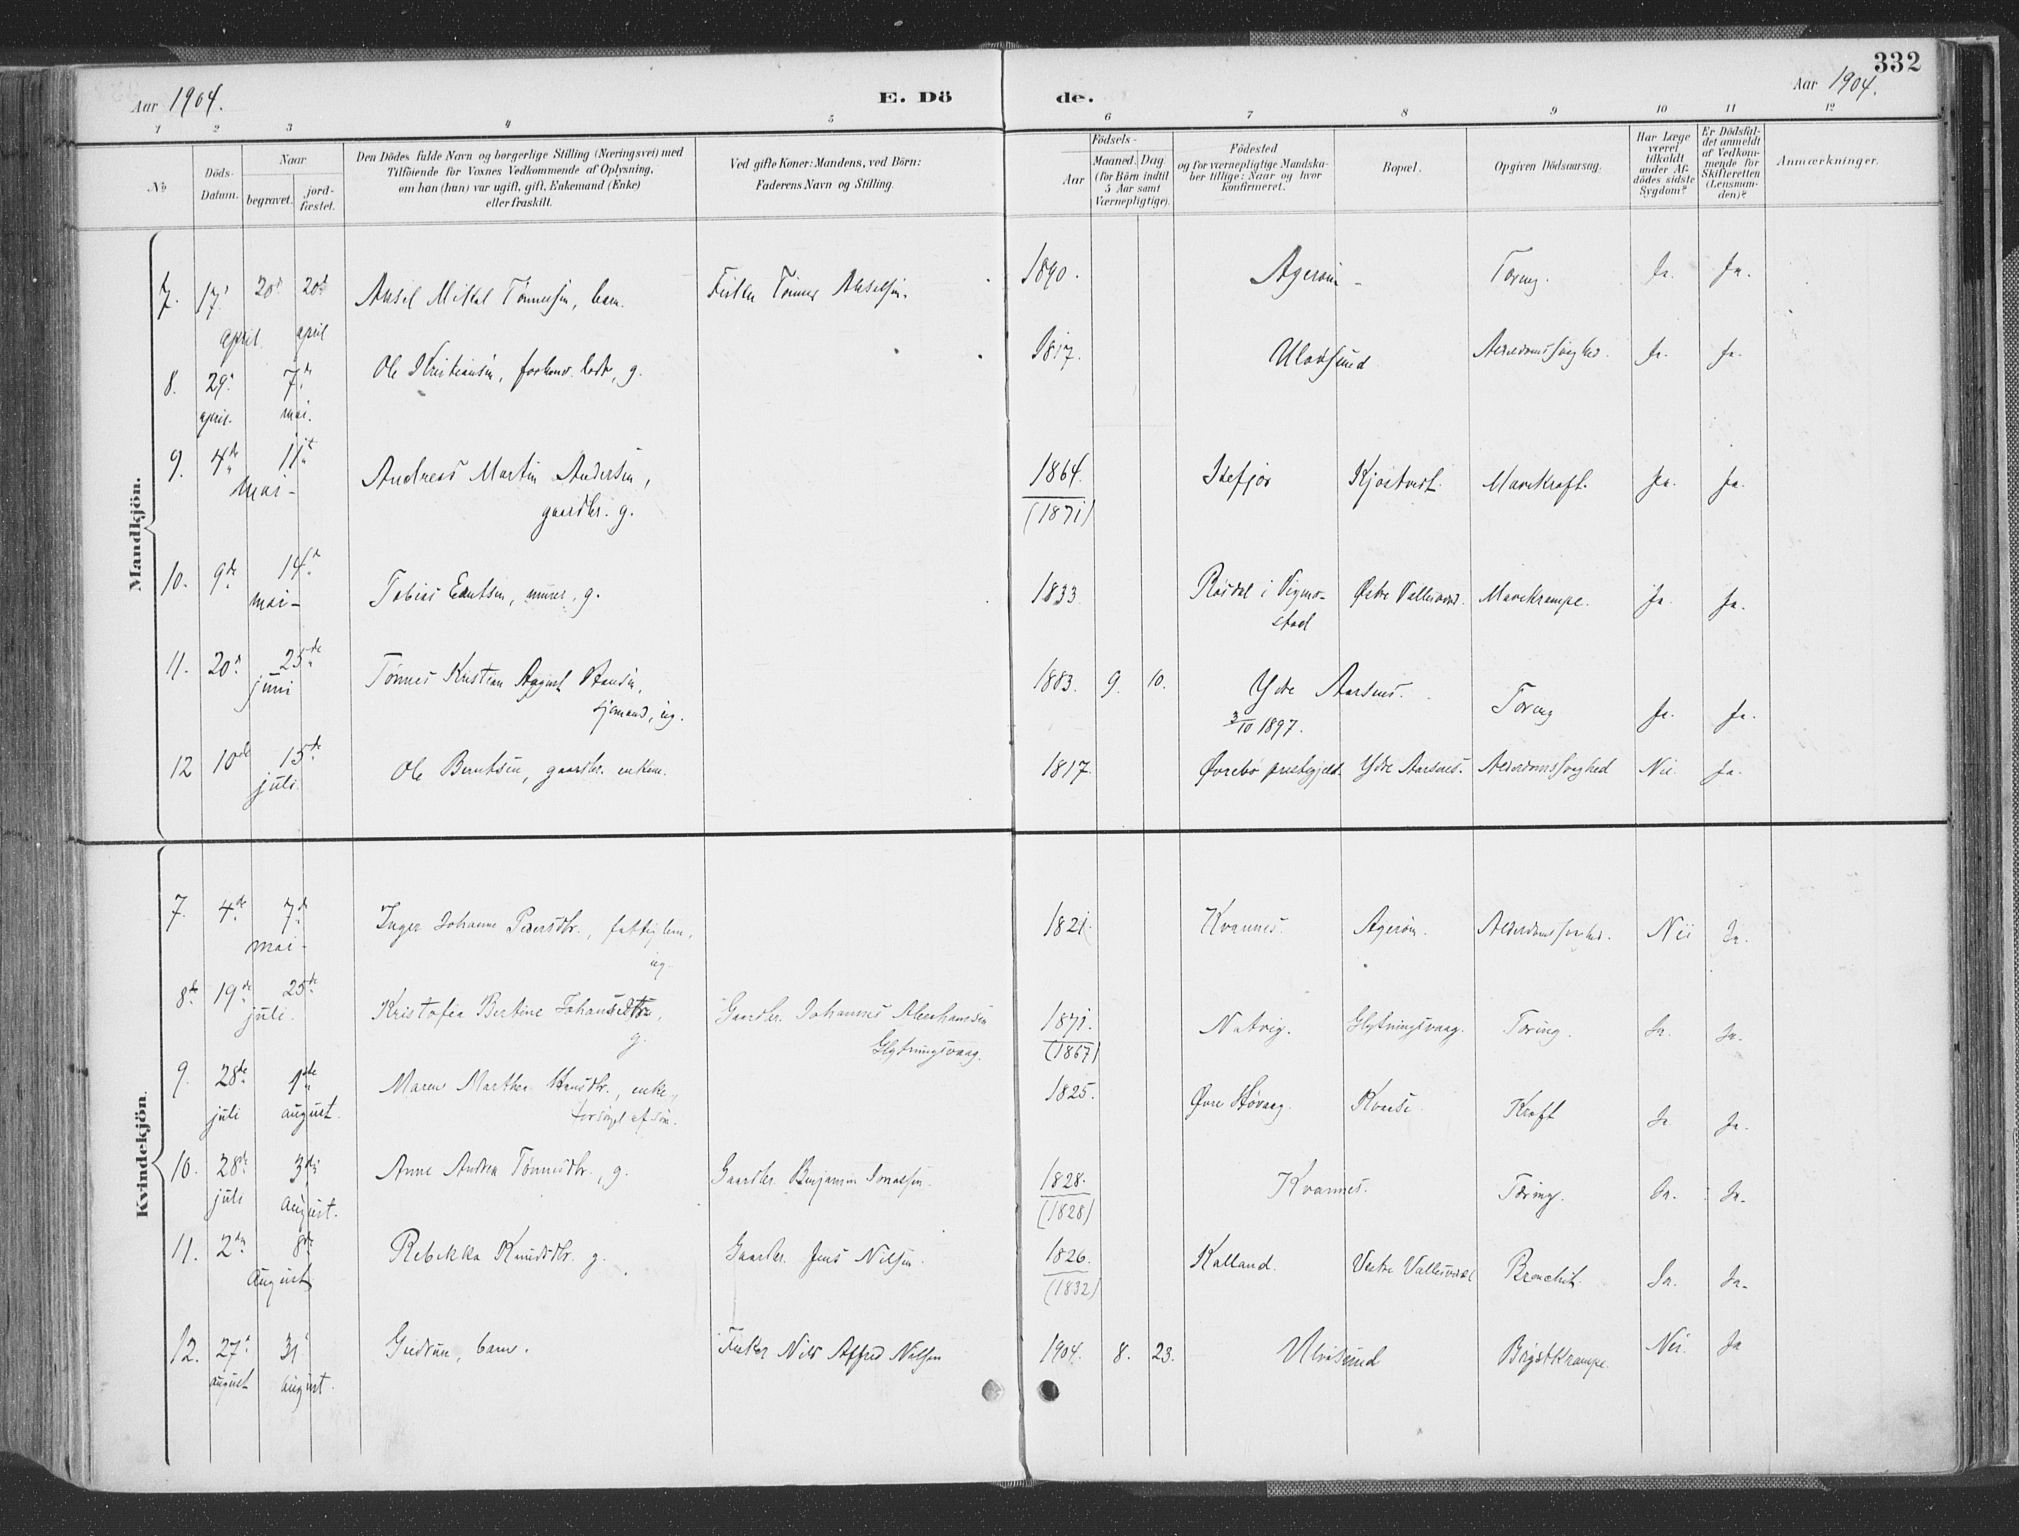 332
Aar 1904.
E. Dö
de.
Aar 1904.
1 2 3 4 5 6 7 8 9 10 11 12
№
Döds-Datum.
Naar
begravet.
jord-fæstet.
Den Dödes fulde Navn og borgerlige Stilling (Næringsvei) med
Tilföiende for Voxnes Vedkommende af Oplysning,
om han (hun) var ugift, gift, Enkemand (Enke)
eller fraskilt.
Ved gifte Koner: Mandens, ved Börn:
Faderens Navn og Stilling.
Födsels-
Aar
Maaned. Dag
(for Börn indtil
5 Aar samt
Værnepligtige).
Födested
og for værnepligtige Mandska-
ber tillige: Naar og hvor
konfirmeret.
Bopæl.
Opgiven Dödsaarsag.
Har Læge
været
tilkaldt
under Af-
dödes sidste
Sygdom?
Er Dödsfal-
det anmeldt
af Vedkom-
mende for
Skifteretten
(Lensman-
den)?
Anmærkninger.
Mandkjön.
7. 17. 20 20 Aksel Mikal Tønnesen, barn. Fisker Tønnes Akselsen. 1890. Agerøen Tæring. Ja. Ja.
april april
8. 29. 7de Ole Kristiansen, forhenv. lods, g. 1817. Ulvøsund Alderdomssvaghed. Ja. Ja.
april. mai.
9. 4de 11te Andreas Martin Andersen, 1864. Isefjør Kjøstvedt. Mavekræft. Ja. Ja.
mai gaardbr. g. (1871)
10. 9de 14 Tobias Berntsen, murer, g. 1833. Røsdal i Vigmo- Østre Vallesværd. Mavekrampe. Ja. Ja.
mai stad
11. 20 25de Tønnes Kristian August Hansen, 1883. 9. 10. Ydre Aarsnes. Tæring Ja. Ja.
juni sjømand, ug. 3/10 1897.
12 10de 15de Ole Berntsen, gaardbr. enkem. 1817. Øvrebø prestegjeld. Ydre Aarsnes. Alderdomssvaghed Nei Ja.
juli.
Kvindekjön.
7. 4de 7de Inger Johanne Pedersdtr., fattiglem, 1821. Kvannes. Agerøen. Alderdomssvaghed. Nei Ja.
mai ug.
8de 19de 25de Kristofia Bertine Johannesdtr., Gaardbr. Johannes Abrahamsen 1871. Natvig. Glytningsvaag. Tæring. Ja. Ja.
juli. g. Glytningsvaag. (1867)
9. 28de 1ste Maren Marthea Hansdtr., enke, 1825. Øvre Høvaag. Kvaase. Kræft Ja. Ja.
juli august. forsørget af søn.
10. 28de 3die Anne Andrea Tønnesdtr., g. Gaardbr. Benjamin 1828. Kvannes. Tæring. Ja. Ja.
juli august. (1828)
11. 2den 8de Rebekka Knudsdtr. g. Gaardbr. Jens Nilsen. 1826. Kalland. Vestre Vallesværd Bronchit. Ja. Ja.
august (1832)
12. 27 31 Gudrun, barn. Fisker Nils Alfred Nilsen 1904. 8. 23. Ulvøsund Brystkrampe. Nei. Ja
august august.